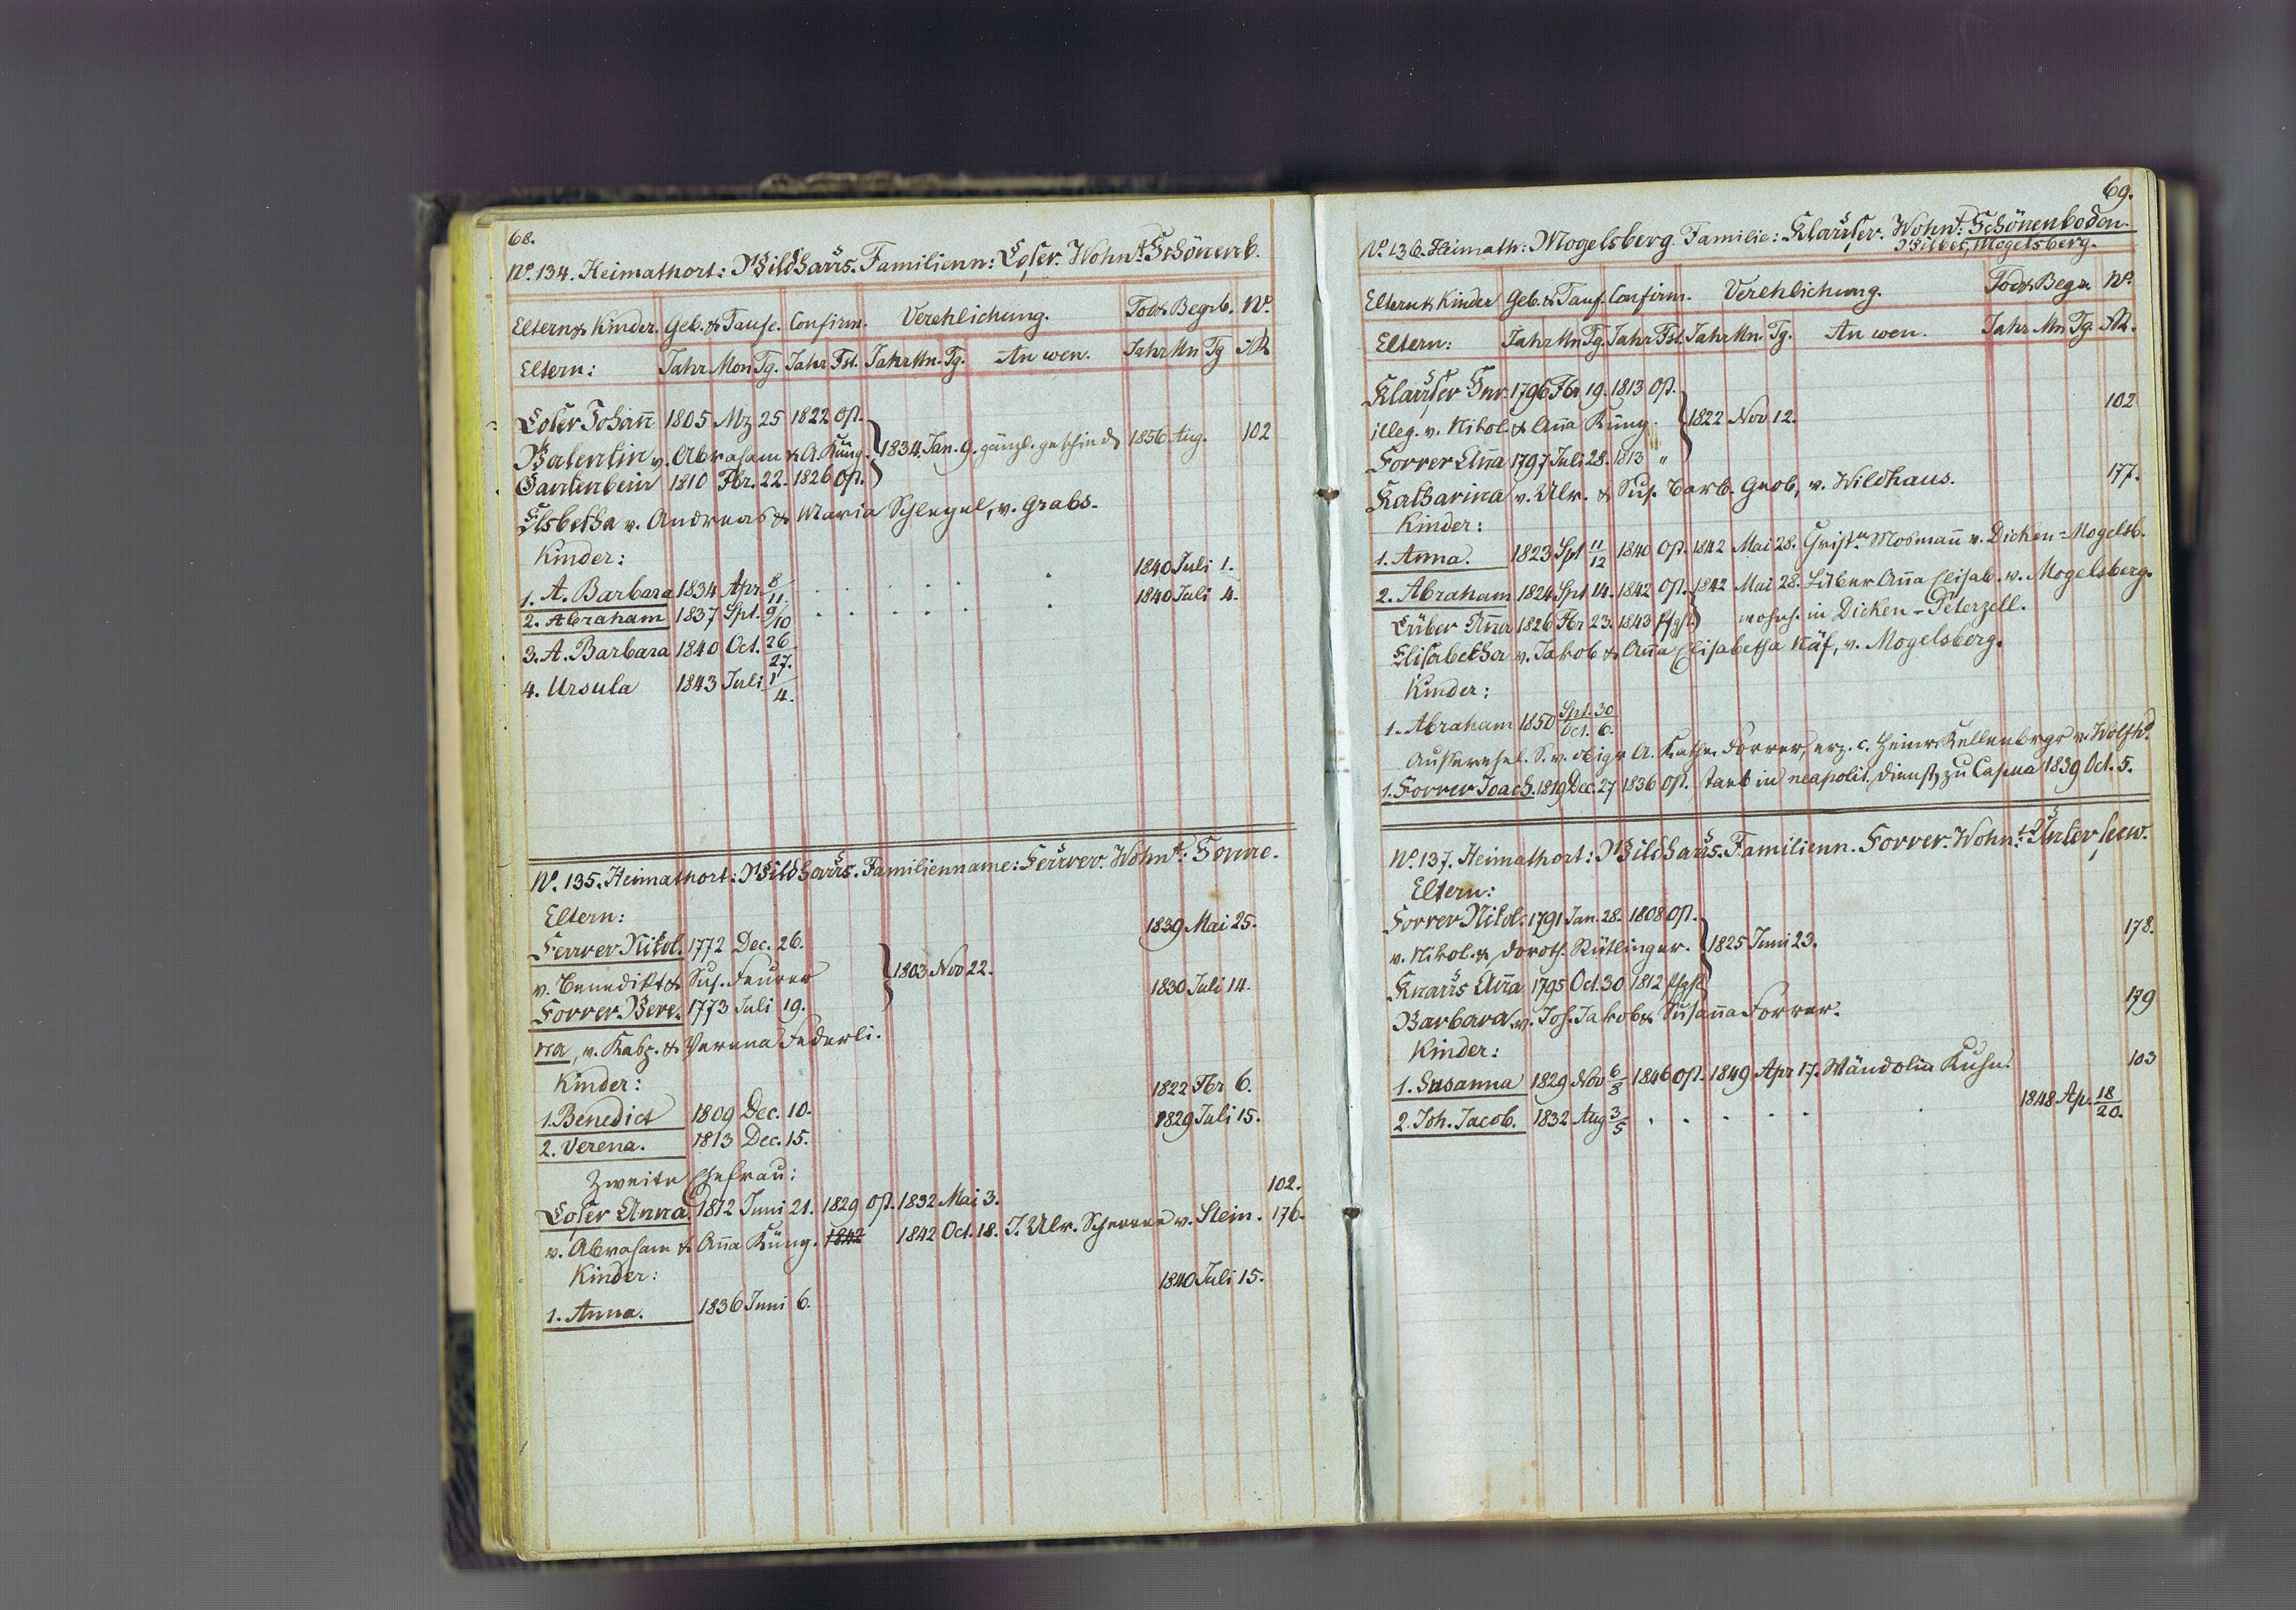 68.
No. 134. Heimathort: Wildhaus. Familienn: Loser. Wohnt. Schönenb.
Eltern & Kinder. Geb. & Taufe. Confirm. Verehlichung. Tod & Begrb. No.
Eltern: Jahr Mon Tg. Jahr Fst. Jahr Mn. Tg. An wen. Jahr Mn Tg
Loser Johañ 1805 Mz 25 1822 Ost.
Valentin v. Abraham & A. Küng. 1834. Jan. 9. gänzl. geschied 1856 Aug. 102
Gantenbein 1810 Fbr. 22. 1826 Ost.
Elsbetha v. Andreas & Maria Schlegel, v. Grabs.
Kinder:
1. A. Barbara 1834 Apr. 8/11. 1840 Juli 1.
2. Abraham 1837 Spt. 9/10 1840 Juli 4.
3. A. Barbara 1840 Oct. 26/27.
4. Ursula 1843 Juli 1/4.
No. 135. Heimathort: Wildhaus. Familienname: Feurer. Wohnt. Sonne.
Eltern:
Feurer Nikol. 1772 Dec. 26. 1839 Mai 25.
v. Benedikt & Sus. Feurer 1803 Nov 22.
Forrer Vere- 1773 Juli 19. 1830 Juli 14.
na, v. Kasp. & Verena Federli.
Kinder:
1. Benedict 1809 Dec. 10. 1822 Fbr 6.
2. Verena. 1813 Dec. 15. 1829 Juli 15.
Zweite Ehefrau:
Loser Anna. 1812 Juni 21. 1829 Ost. 1832 Mai 3. 102.
v. Abraham & Aña Küng. 1842 1842 Oct. 18. J. Ulr. v. Stein. 176.
Kinder:
1. Anna. 1836 Juni 6. 1840 Juli 15.
69.
No. 136. Heimath: Mogelsberg. Familie: Klauser. Wohnt. Schönenboden.
Mogelsberg.
Eltern & Kinder Geb. & Tauf. Confirm. Verehlichung. Tod & Begr. No.
Eltern: Jahr Mn Tg. Jahr Fst. Jahr Mn. Tg. An wen. Jahr Mn Tg.
Klauser Hnr. 1796 Fbr 19. 1813 Ost. 102
illeg. v. Nikol. & Aña Küng. 1822 Nov 12.
Forrer Aña 1797 Juli 28. 1813 "
Katharina v. Ulr. & Sus. Barb. Grob, v. Wildhaus. 177.
Kinder:
1. Anna. 1823 Spt 11/12 1840 Ost. 1842 Mai 28. Mosmañ v. Dicken = Mogelsb.
2. Abraham 1824 Spt 14. 1842 Ost. 1842 Mai 28. Lüber Aña Elisab. v. Mogelsberg.
Lüber Aña 1826 Fbr 23. 1843 Pfgst. wohnh. in Dicken = Peterzell.
Elisabetha v. Jakob & Aña Elisabetha Näf, v. Mogelsberg.
Kinder:
1. Abraham 1850 Spt. 30/Oct. 6.
Ausserehel. S. v. obiger A. Kathr. Forrer, erz. c. Heinr. Kellenbrgr v.
1. Forrer Joach. 1819 Dec. 27 1836 Ost. starb in neapolit. Dienst, zu Capua 1839 Oct. 5.
No. 137. Heimathort: Wildhaus. Familienn. Forrer. Wohnt. Unter seew.
Eltern:
Forrer Nikol. 1791 Jan. 28. 1808 Ost. 178.
v. Nikol. & Doroth. Rütlinger. 1825 Juni 23.
Knaus Aña 1795 Oct. 30 1812 Pfgst
Barbara v. Joh. Jakob & Susaña Forrer. 179
Kinder:
1. Susanna 1829 Nov 6/8 1846 Ost. 1849 Apr 17. Wändolin Kuhn. 103
2. Joh. Jacob. 1832 Aug 3/5 1848 Ap. 18/20.